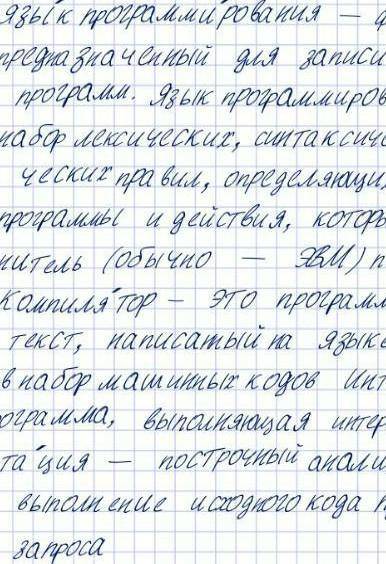 язы́к программи́рования — ф
предназначенный для записи
программ. Язык программиров
набор лексических, синтаксиче
ческих правил, определяющи
программы и действия, которы
нитель (обычно — ЭВМ) п
Компиля́тор — это программ
текст, написатый на языке
в набор машинных кодов Инт
ограмма, выполняющая интер
та́ция — построчный анали
выполнение исходного кода п
запроса